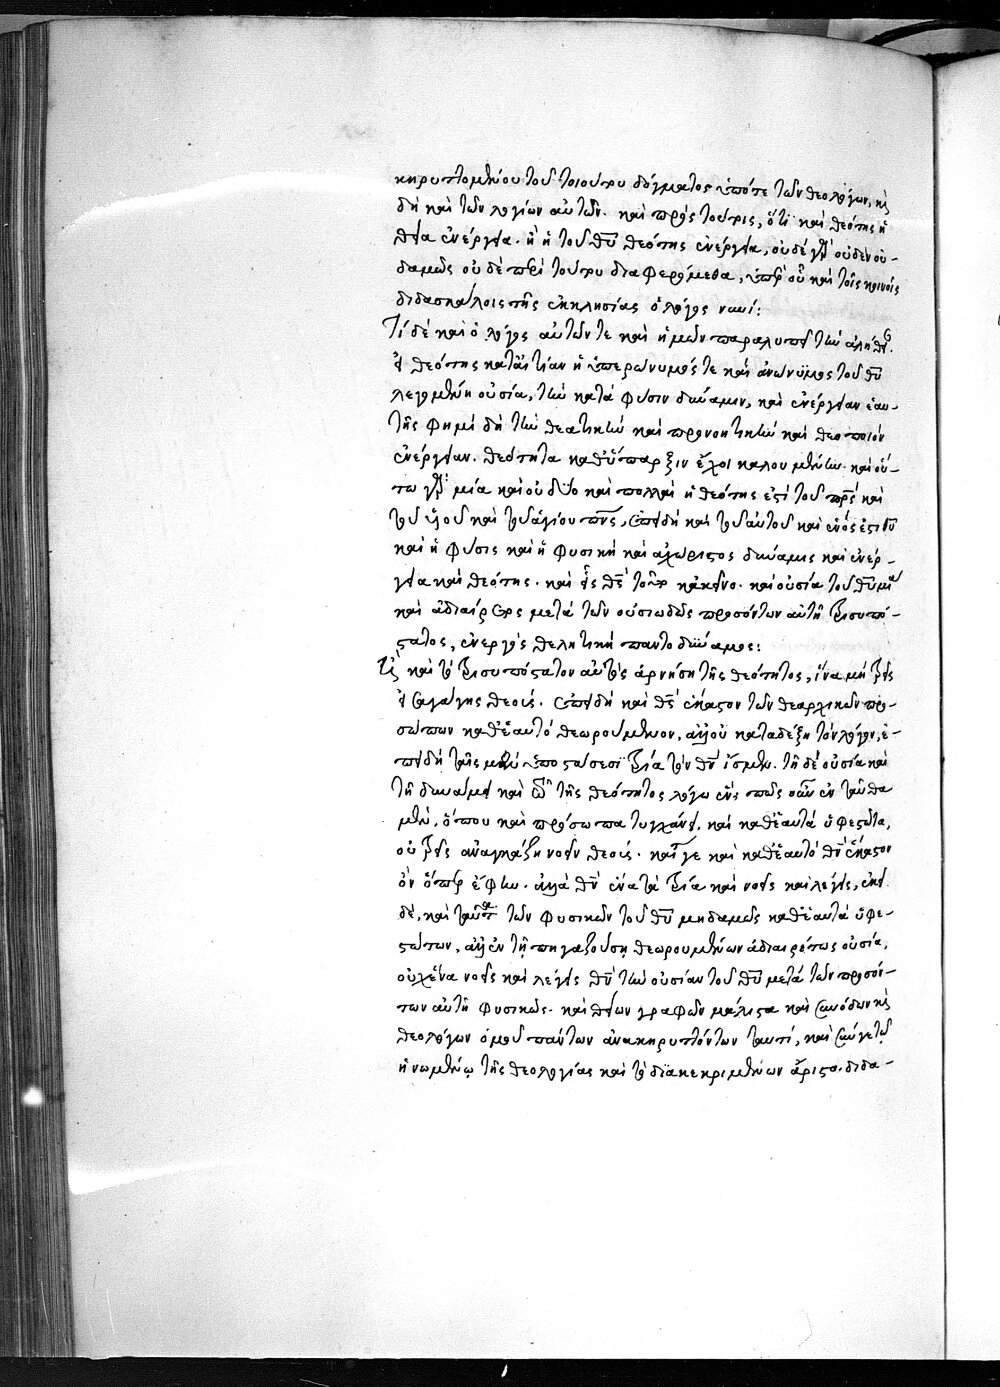 κηρυττομένου τοῦ τοιούτου δόγματος ὑπό τε τῶν θεολόγων,
δὴ καὶ τῶν λογίων αὐτῶν. καὶ πρὸς τούτοις, ὅτι καὶ θεότης ἡ
θεία ἐνέργεια. ἢ ἡ τοῦ θῦ θεότης ἐνέργεια, οὐδὲ γὰρ οὐδὲν οὐ-
δαμῶς οὐδὲ περὶ τούτου διαφερόμεθα, ὑπὲρ οὗ καὶ τοῖς κοινοῖς
διδασκάλοις τῆς ἐκκλησίας ὁ λόγος νυνί:
Τί δὲ καὶ ὁ λόγος αὐτῶν τε καὶ ἡμῶν παραλυπεῖ τὴν ἀλήθειαν.
εἰ θεότης κατ' αἰτίαν ἡ ὑπερώνυμός τε καὶ ἀνώνυμος τοῦ θῦ
λεγομένη οὐσία, τὴν κατὰ φύσιν δύναμιν, καὶ ἐνέργειαν ἑαυ-
τῆς φημὶ δὴ τὴν θεατικὴν καὶ προνοητικὴν καὶ θεοποιὸν
ἐνέργειαν. θεότητα καθ' ὕπαρξιν ἔχοι καλουμένην. καὶ οὕ-
τω γὰρ μία καὶ οὐ δύο καὶ πολλαὶ ἡ θεότης ἐστὶ τοῦ πρς καὶ
τοῦ υἱοῦ καὶ τοῦ ἁγίου πνς, ἐπειδὴ καὶ τοῦ αὐτοῦ καὶ ἑνός ἐστι θῦ
καὶ ἡ φύσις καὶ ἡ φυσικὴ καὶ ἀχώριστος δύναμις καὶ ἐνέρ-
γεια καὶ θεότης. καὶ εἷς θς τοῦτο κἀκεῖνο. καὶ οὐσία τοῦ θῦ μία
καὶ ἀδιαίρετος μετὰ τῶν οὐσιωδῶς προσόντων αὐτῇ τρισυπό-
στατος, ἐνεργὸς θελητικὴ παντοδύναμος:
Εἰ καὶ τὸ τρισυπόστατον αὐτὸς ἀρνήσῃ τῆς θεότητος, ἵνα μὴ τρεῖς
εἰσαγάγῃς θεούς. ἐπειδὴ καὶ θς ἕκαστον τῶν θεαρχικῶν προ-
σώπων καθ' ἑαυτὸ θεωρούμενον, ἀλλ' οὐ καταδέξῃ τὸν λόγον, ἐ-
πειδὴ ταῖς μὲν ὑποστάσεσι τρία τὸν θν ἴσμεν. τῇ δὲ οὐσίᾳ καὶ
τῇ δυνάμει καὶ τῆς θεότητος λόγῳ εἷς πῶς οὖν ἐνταῦθα
μὲν, ὅπου καὶ πρόσωπα τυγχάνει. καὶ καθ' ἑαυτὰ ὑφεστῶτα,
οὐ τρεῖς ἀναγκάζῃ νοεῖν θεούς. καίτοιγε καὶ καθ' ἑαυτὸ θν ἕκαστον
ὂν ὅπερ ἔφην. ἀλλὰ θν ἕνα τὰ τρία καὶ νοεῖς καὶ λέγεις, ἐκεῖ
δὲ, καὶ ταῦτα τῶν φυσικῶν τοῦ θῦ μηδαμῶς καθ' ἑαυτὰ ὑφε-
στώτων, ἀλλ' ἐν τῇ πηγαζούσῃ θεωρουμένων ἀδιαιρέτως οὐσίᾳ,
οὐχ ἕνα νοεῖς καὶ λέγεις θν τὴν οὐσίαν τοῦ θῦ μετὰ τῶν προσόν-
των αὐτῇ φυσικῶς. καὶ θείων γραφῶν μάλιστα καὶ συνόδων καὶ
θεολόγων ὁμοῦ πάντων ἀνακηρυττόντων ταυτί, καὶ συνάγεται
ἡνωμένῳ τῆς θεολογίας καὶ τὸ διακεκριμένον ἄριστα. διδα-